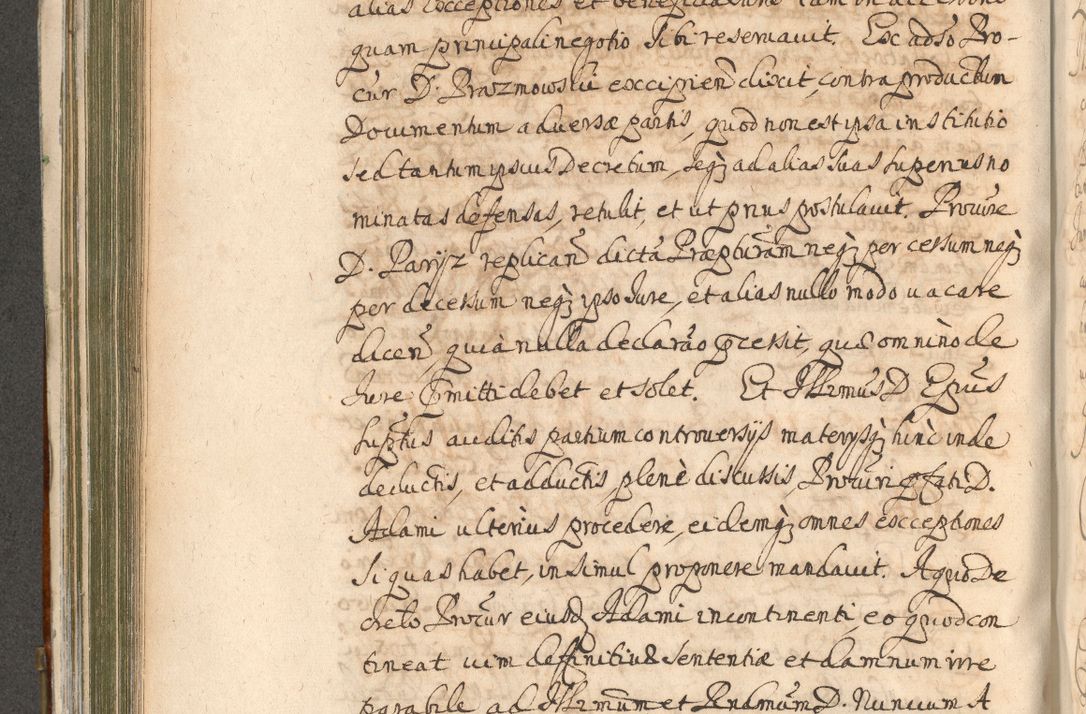 alias Exceptiones et beneficia Juris tam in accessorio
quam principali negotio sibi reservavit. Ex adso Pro-
cur D. Prazmowski excipien dixit, contra productum
Documentum adversæ partis, quod non est ipsa institutio
sed tantum ipsius Decretum, seq3 ad alias suas superius no
minatas defensas, retulit, et ut prius postulavit. Procure
D. Paryz replican dicta Præpturam neq3 per cessum neq3
per decessum neq3 ipso Jure, et alias nullo modo vacare
dicen, quia nulla declarao pcessit, quæ omnino de
Jure pmitti debet et solet. Et Illrmus D Epus
suptus auditis partium controversijs materysq3 hinc inde
deductis, et adductis plene discussis, Procuri pfati D.
Adami ulterius procedere, eidemq3 omnes exceptiones
si quas habet, in simul proponere mandavit. A quo De
creto Procur eiusd Adami in continenti, eo quod con
tineat vim deffinitivæ sententiæ et damnum irre
parabile ad Illrmum et Rndmum D. Nuncium A